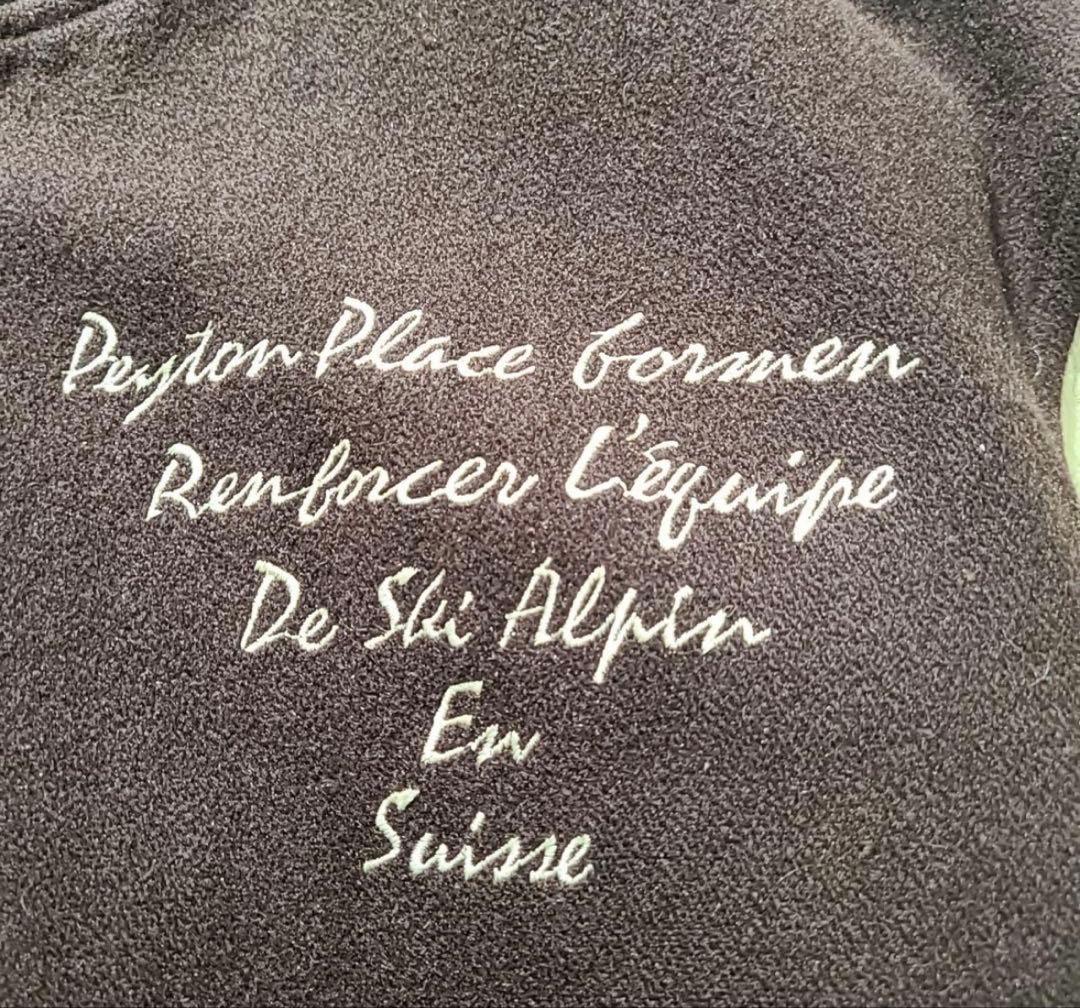 Peyton Place Gormen
Renforcer L'équipe
De Ski Alpin
En
Suisse